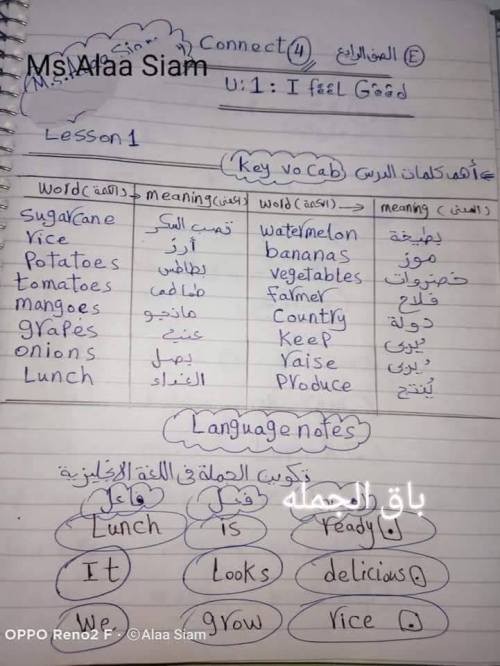 Connect 4 الصف الرابع E
Ms.Alaa Siam
U:1: I feel Good
Lesson 1
أهم كلمات الدرس (Key vocab)
word (الكلمة) → meaning (المعنى) word (الكلمة) → meaning (المعنى)
Sugarcane قصب السكر watermelon بطيخة
rice أرز bananas موز
Potatoes بطاطس vegetables خضروات
tomatoes طماطم farmer فلاح
mangoes مانجو Country دولة
grapes عنب Keep يربى
onions بصل raise يربى
Lunch الغداء Produce يُنتج
Language notes
تكوين الجملة فى اللغة الإنجليزية
فاعل فعل باق الجمله
Lunch is ready.
It Looks delicious.
We grow rice.
OPPO Reno2 F · ©Alaa Siam